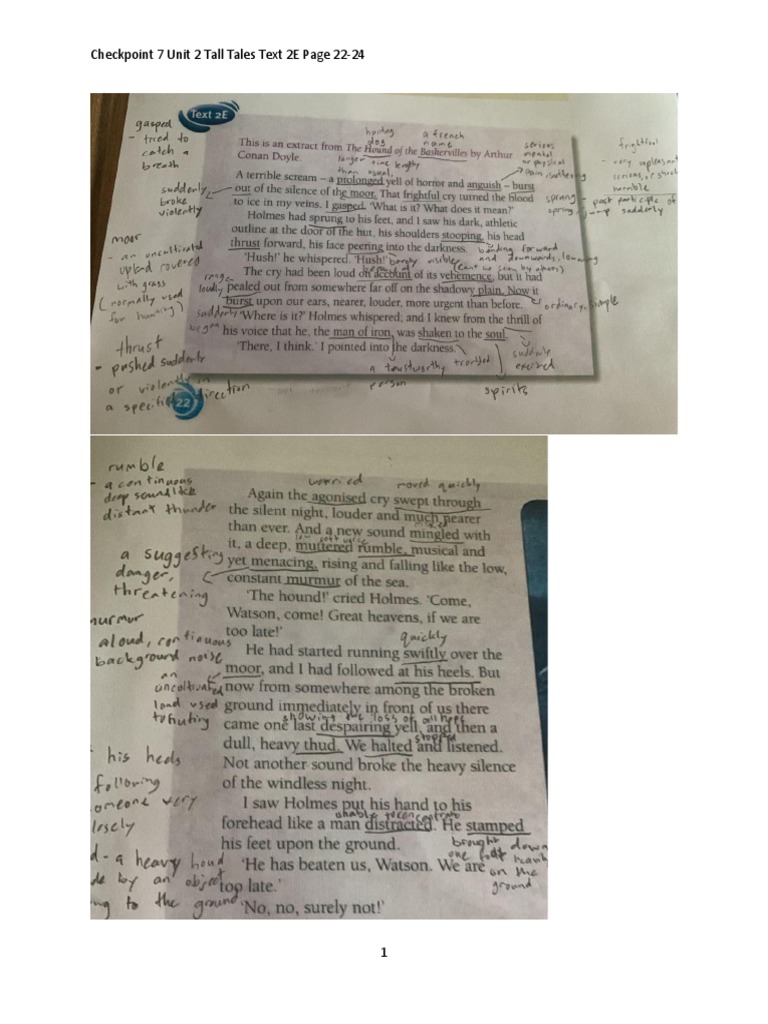 Checkpoint 7 Unit 2 Tall Tales Text 2E Page 22-24
Text 2E
gasped
- tried to
catch a
breath
suddenly
broke
violently
moor
- an uncultivated
upland covered
with grass
(normally used
for hunting)
thrust
- pushed suddenly
or violently in
a specific direction
hunting
dog
a french
name
longer time lengthy
than usual
serious
mental
or physical
pain, suffering
frightful
- very unpleasant
serious, or
horrible
sprang - past participle of
spring, jump suddenly
This is an extract from The Hound of the Baskervilles by Arthur
Conan Doyle.
A terrible scream – a prolonged yell of horror and anguish – burst
out of the silence of the moor. That frightful cry turned the blood
to ice in my veins. I gasped. 'What is it? What does it mean?'
Holmes had sprung to his feet, and I saw his dark, athletic
outline at the door of the hut, his shoulders stooping, his head
thrust forward, his face peering into the darkness.
bending forward
and downwards, lowering
'Hush!' he whispered. 'Hush!'
barely visible
(cant be seen by others)
because of
The cry had been loud on account of its vehemence, but it had
range
loudly
pealed out from somewhere far off on the shadowy plain. Now it
ordinary, simple
burst upon our ears, nearer, louder, more urgent than before.
suddenly
began
'Where is it?' Holmes whispered; and I knew from the thrill of
his voice that he, the man of iron, was shaken to the soul.
'There, I think.' I pointed into the darkness.
a trustworthy
person
troubled
suddenly
excited
spirits
22
rumble
- a continuous
deep sound like
distant thunder
a suggesting
danger,
threatening
murmur
aloud, continuous
background noise
an
uncoltivated
land used
to huting
his heels
following
someone very
closely
- a heavy houd
de by an object
ng to the ground
worried
moved quickly
Again the agonised cry swept through
the silent night, louder and much nearer
mixed
than ever. And a new sound mingled with
low soft voice
it, a deep, muttered rumble, musical and
yet menacing, rising and falling like the low,
constant murmur of the sea.
'The hound!' cried Holmes. 'Come,
Watson, come! Great heavens, if we are
too late!'
quickly
He had started running swiftly over the
moor, and I had followed at his heels. But
now from somewhere among the broken
ground immediately in front of us there
showing the loss of all hope
came one last despairing yell, and then a
stopped
dull, heavy thud. We halted and listened.
Not another sound broke the heavy silence
of the windless night.
I saw Holmes put his hand to his
unable to concentrate
forehead like a man distracted. He stamped
his feet upon the ground.
brought down
one foot heavily
on the
ground
'He has beaten us, Watson. We are
too late.'
'No, no, surely not!'
1